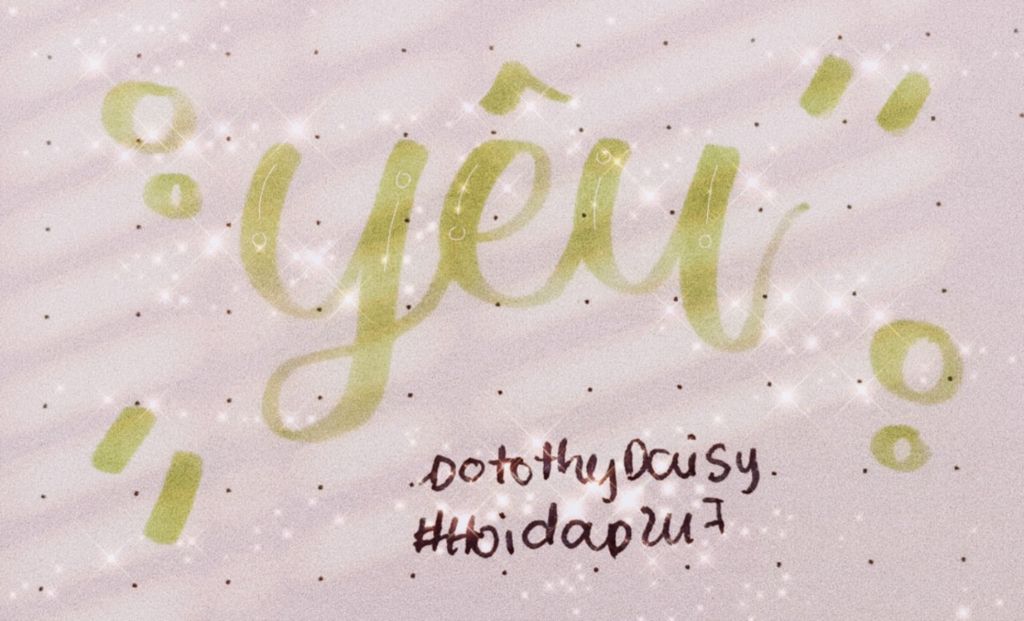 yêu
.DotothyDaisy.
#Hoidap247